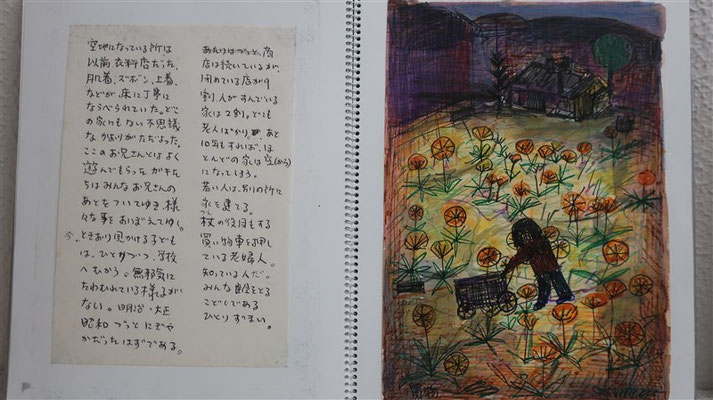 空地になっている所は
以前、衣料店だった。
肌着、ズボン、上着、
などが床に丁寧に
ならべられていた。どこ
の家にもない不思議
なかおりがただよった。
ここのお兄さんとはよく
遊んでもらった ガキた
ちはみんなお兄さんの
あとをついてゆき、様
々な事をおぼえてゆく。
今、ときおり見かける子ども
は、ひとりづつ、学校
へむかう。無邪気に
たわむれている様子が
ない。明治・大正
昭和 づっと にぎや
かだったはずである。
商
店は続いているが、
閉めている店が9
割、人がすんでいる
家は2割。どこも
老人ばかり。あと
10年もすれば、ほ
とんどの家は空(から)
になってしまう。
若い人は、別の所に
家を建てる。
杖の役目もする
買い物車を押し
ている老婦人。
知っている人だ。
みんな歳をとる
ことしである
ひとりずまい。